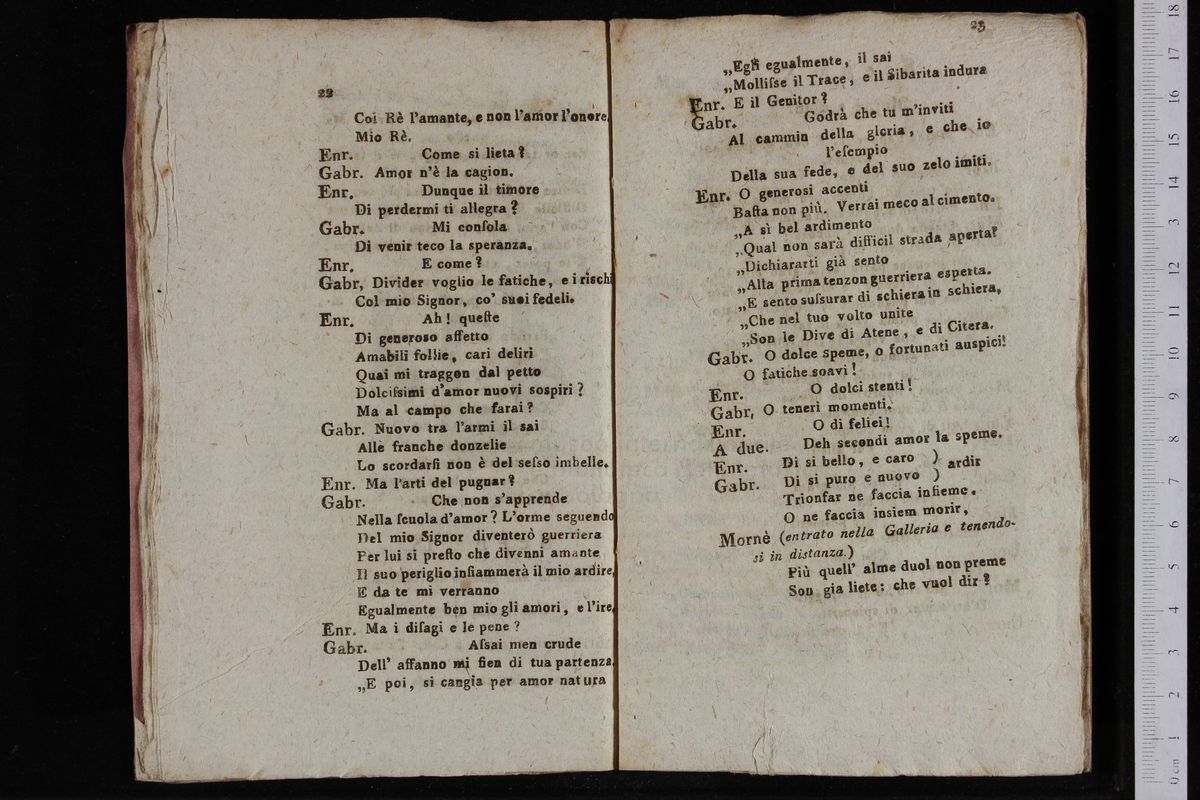 22
Coi Rè l'amante, e non l'amor l'onore,
Mio Rè.
Enr. Come si lieta?
Gabr. Amor n'è la cagion.
Enr. Dunque il timore
Di perdermi ti allegra?
Gabr. Mi conſola
Di venir teco la speranza.
Enr. E come?
Gabr, Divider voglio le fatiche, e i rischi
Col mio Signor, co' suoi fedeli.
Enr. Ah! queſte
Di generoso affetto
Amabili follie, cari deliri
Quai mi traggon dal petto
Dolciſsimi d'amor nuovi sospiri?
Ma al campo che farai?
Gabr. Nuovo tra l'armi il sai
Alle franche donzelle
Lo scordarſi non è del seſso imbelle.
Enr. Ma l'arti del pugnar?
Gabr. Che non s'apprende
Nella ſcuola d'amor? L'orme seguendo
Del mio Signor diventerò guerriera
Per lui si preſto che divenni amante
Il suo periglio infiammerà il mio ardire,
E da te mi verranno
Egualmente ben mio gli amori, e l'ire,
Enr. Ma i diſagi e le pene?
Gabr. Aſsai men crude
Dell' affanno mi fien di tua partenza.
„E poi, si cangia per amor natura
23
„Egli egualmente, il sai
„Molliſse il Trace, e il Sibarita indura
Enr. E il Genitor?
Gabr. Godrà che tu m'inviti
Al cammin della gloria, e che io
l'eſempio
Della sua fede, e del suo zelo imiti.
Enr. O generosi accenti
Baſta non più. Verrai meco al cimento.
„A sì bel ardimento
„Qual non sarà difficil strada aperta?
„Dichiararti già sento
„Alla prima tenzon guerriera esperta.
„E sento suſsurar di schiera in schiera,
„Che nel tuo volto unite
„Son le Dive di Atene, e di Citera.
Gabr. O dolce speme, o fortunati auspici!
O fatiche soavi!
Enr. O dolci stenti!
Gabr, O teneri momenti.
Enr. O di feliei!
A due. Deh secondi amor la speme.
Enr. Di si bello, e caro ) ardir
Gabr. Di si puro e nuovo )
Trionfar ne faccia inſieme.
O ne faccia insiem morir,
Mornè (entrato nella Galleria e tenendo-
si in distanza.)
Più quell' alme duol non preme
Son gia liete: che vuol dir?